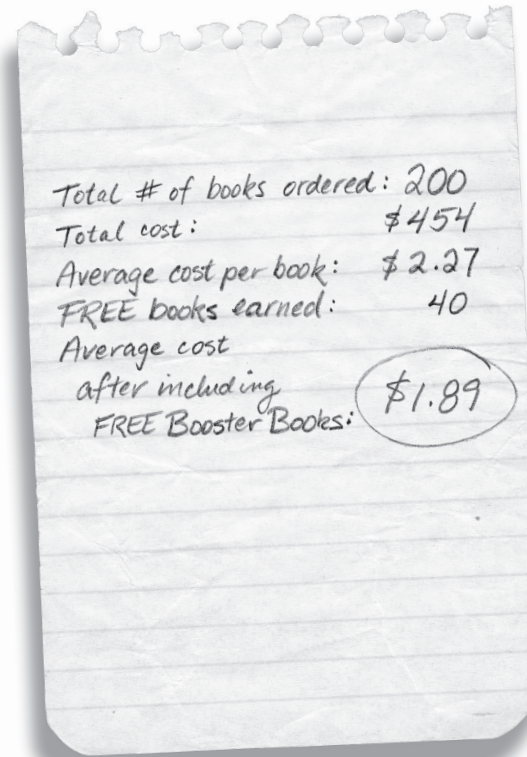 Total # of books ordered: 200
Total cost: $454
Average cost per book: $2.27
FREE books earned: 40
Average cost
after including
FREE Booster Books: $1.89